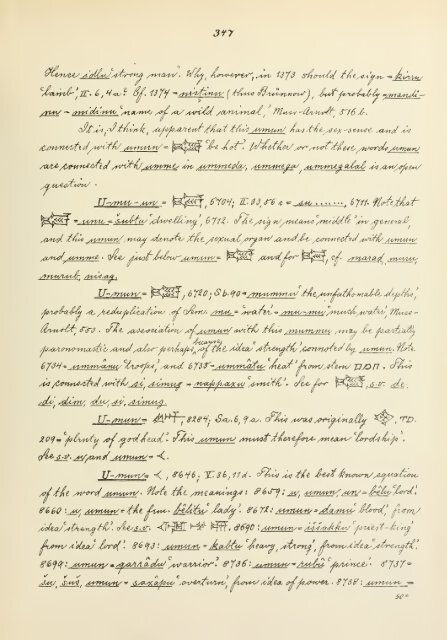 347
Hence idlu 'strong man'. Why, however, in 1373 should the sign = kirru
'lamb', II. 6, 4a? Cf. 1374 = nistinu (thus Brünnow), but probably = mandi-
nu = midinu 'name of a wild animal,' Muss-Arndt, 516 b.
It is, I think, apparent that this umun has the sex-sense and is
connected with umun = 'be hot'. Whether or not these words umun
are connected with umme in ummeda, ummega, ummegalal is an open
question.
U-mu-un = , 6704; II. 33, 56 c = su ......., 6711. Note that
= unu = šubtu 'dwelling', 6712. The sign means 'middle' in general,
and this umun may denote the sexual organ and be connected with umun
and umme. See just below umun = and for , cf. marad, muru,
murub, nisag.
U-mun = , 6720; Sb. 90 = mummu 'the unfathomable depths',
probably a reduplication of Sum. mu = 'water' = mu-mu, 'much water', Muss-
Arndt, 553. The association of umun with this mummu may be partially
paronomastic and, also perhaps, of the idea 'heavy strength' connoted by umun. Note
6734 = ummânu 'troops', and 6735 = ummatu 'heat' from stem חמם. This
is connected with si, simug = nappaxu 'smith'. See for , s.v. de,
di, dim, du, si, simug.
U-mun = , 8284; Sa. 6, 9 a. This was originally , TD.
209 = 'plenty of godhead'. This umun must therefore mean 'lordship'.
See s.v. u, and umun = .
U-mun = , 8646; V. 36, 11 d. This is the best known equation
of the word umun. Note the meanings: 8659: u, umun, un = bêlu 'lord'.
8660: u, umun = the fem. bêlitu 'lady'. 8672: umun = damu 'blood', from
idea 'strength'. See s.v. , 8690: umun = iššakku 'priest-king'
from idea 'lord'. 8693: umun = kabtu 'heavy, strong', from idea 'strength'.
8699: umun = qarradu 'warrior'. 8735: umun = rubû 'prince'. 8737 =
šu, šuš, umun = saxâpu 'overturn', from idea of power. 8738: umun =
50*